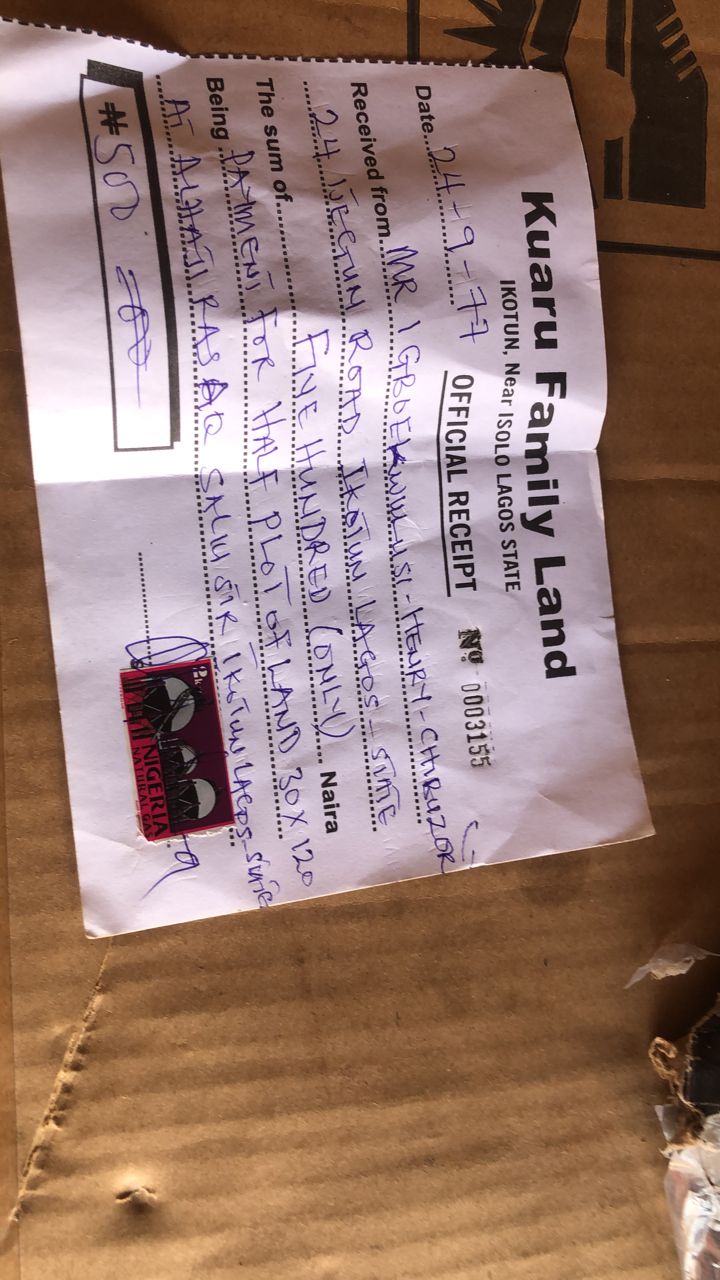 Kuaru Family Land
IKOTUN, Near ISOLO LAGOS STATE
OFFICIAL RECEIPT
Nº 0003155
Date 24-9-77
Received from MR IGBOEKWULUSI-HENRY-CHIBUZOR
24 IJEGUN ROAD IKOTUN LAGOS-STATE
The sum of FIVE HUNDRED (ONLY) Naira
Being PAYMENT FOR HALF PLOT OF LAND 30X120
AT ALHAJI RASAQ SALIU STR IKOTUN LAGOS-STATE
₦500 =00
2k
NIGERIA
NATURAL GAS